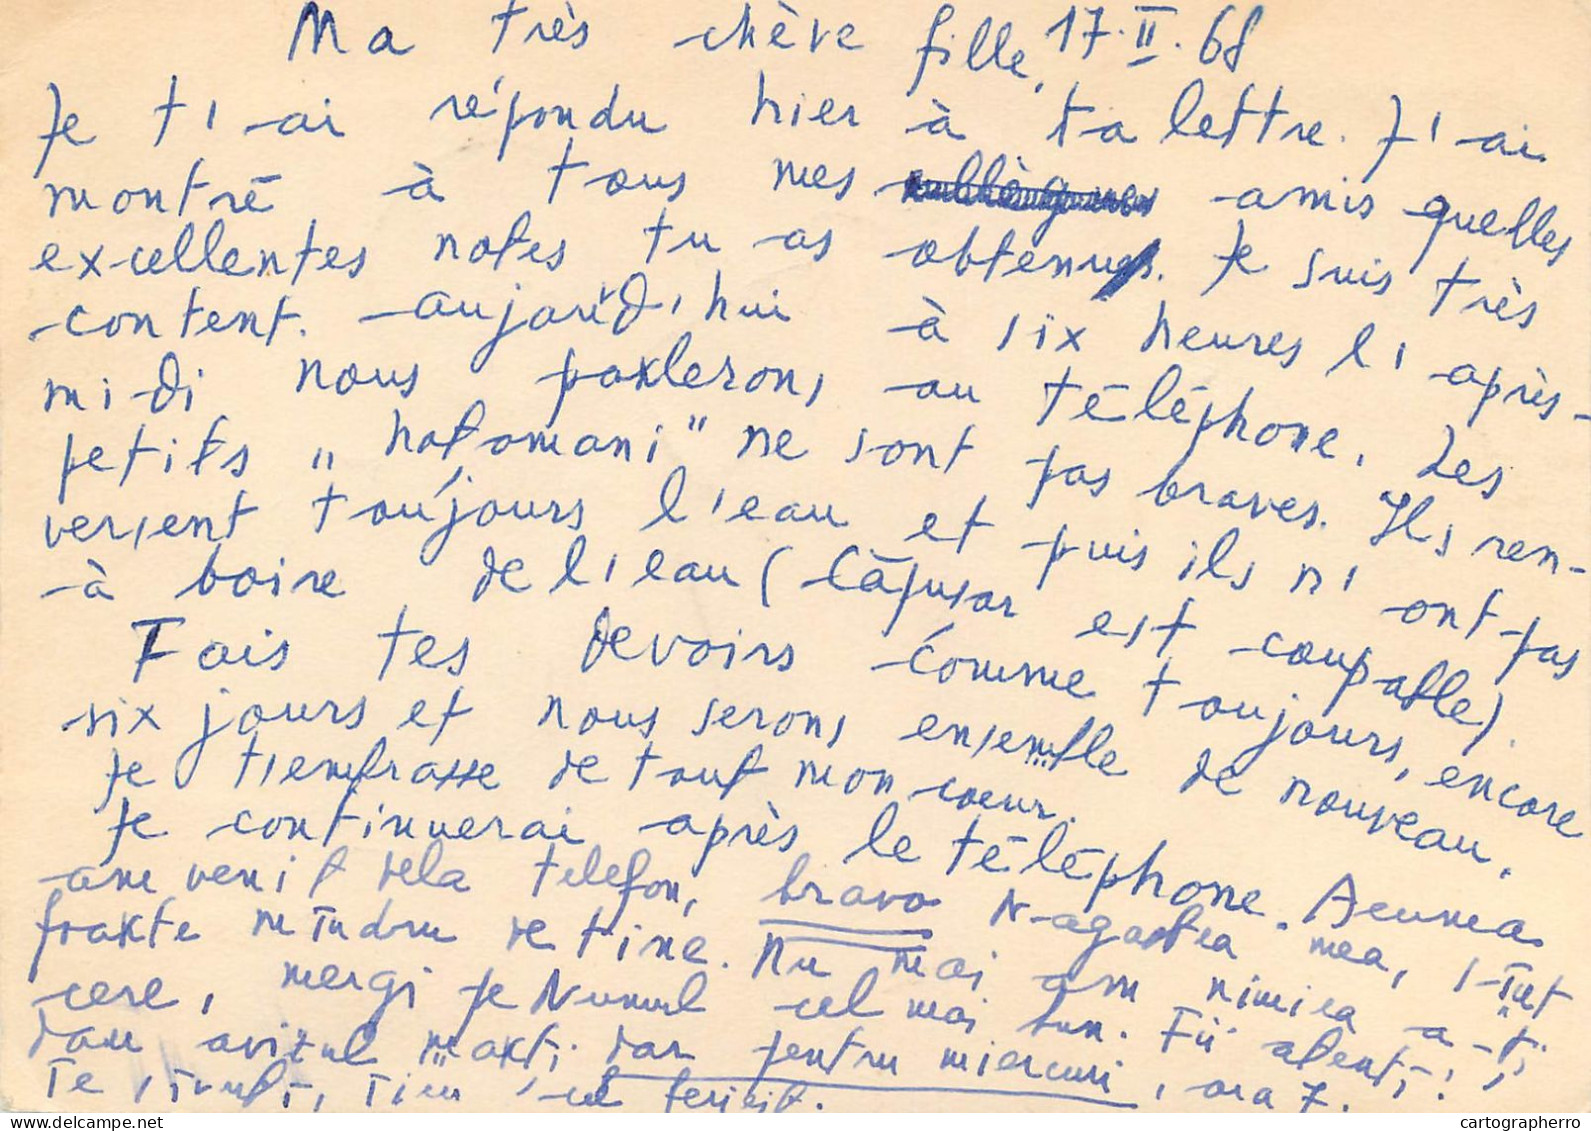 Ma très chère fille, 17.II.68
Je t'ai répondu hier à ta lettre. J'ai
montré à tous mes amis quelles
excellentes notes tu as obtenu. Je suis très
content. aujourd'hui à six heures l'après-
midi nous parlerons au téléphone. Les
petits „hotomani" ne sont pas braves. Ils ren-
versent toujours l'eau et puis ils n'ont pas
à boire de l'eau (Căpușor est coupable).
Fais tes devoirs comme toujours, encore
six jours et nous serons ensemble de nouveau.
Je t'embrasse de tout mon coeur.
Je continuerai après le téléphone. Acuma
am venit dela telefon, bravo N-agastea mea, sînt
foarte mîndru de tine. Nu mai am nimica a-ți
cere, mergi pe Numul cel mai bun. Fii atentă!
dau avizul marți dar pentru miercuri, ora 7.
Te sărută, Tieu cel fericit.
cartographerro